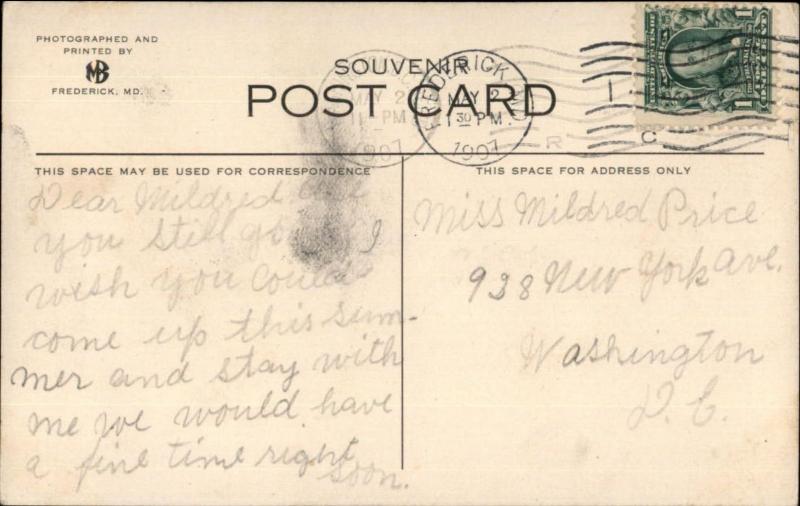 PHOTOGRAPHED AND
PRINTED BY
MB
FREDERICK, MD.
SOUVENIR
POST CARD
FREDERICK
MAY 2
1 30 PM.
1907
MAY 2
1 PM
1907
R C
1 1
THIS SPACE MAY BE USED FOR CORRESPONDENCE
Dear Mildred are
you still go I
wish you could
come up this sum-
mer and stay with
me we would have
a fine time right
soon.
THIS SPACE FOR ADDRESS ONLY
Miss Mildred Price
938 New York ave.
Washington
D. C.